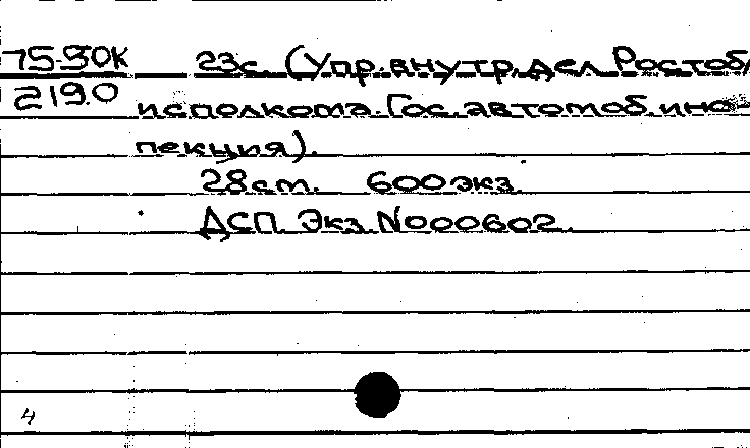 75-30К 23с. (Упр. внутр. дел Ростобл
2190 исполкома. Гос. автомоб. инс-
пекция).
28 ст. 600 экз.
ДСП. Экз. N000602.
4